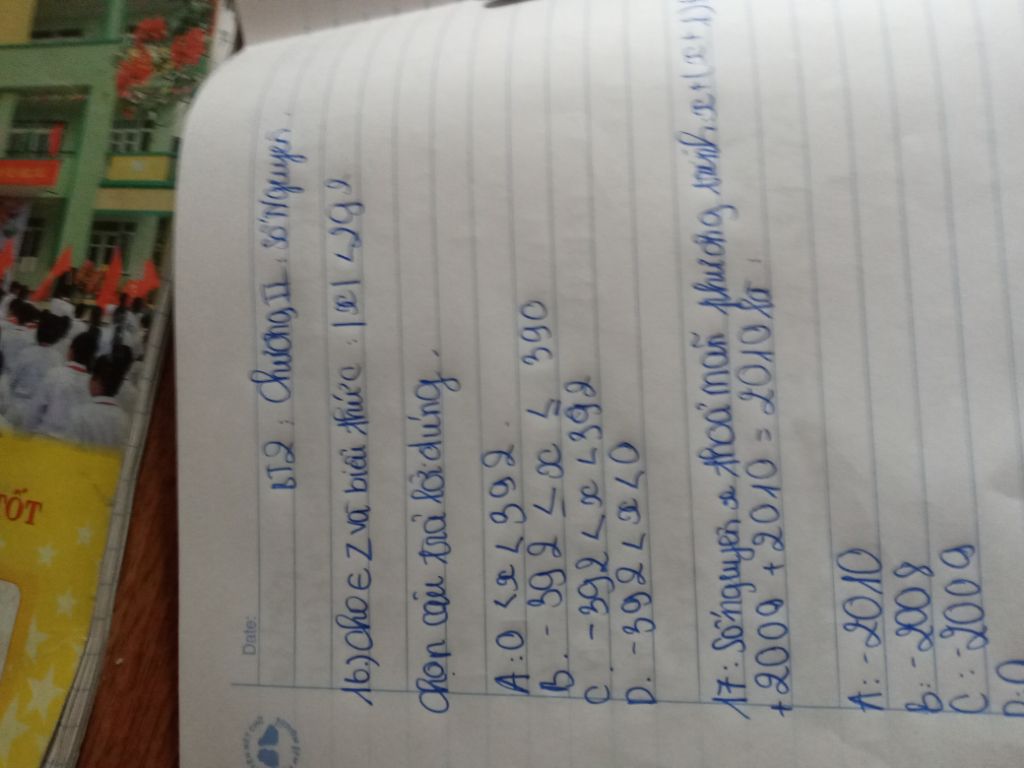 Date:
BT2: Chương II: Số Nguyên.
16) Cho ∈ Z và biểu thức: |x| < 292
Chọn câu trả lời đúng.
A: 0 < x < 392.
B. -392 ≤ x ≤ 390
C. -392 < x < 392
D. -392 < x < 0
17: Số nguyên x thoả mãn phương trình x + (x+1)
+2009 + 2010 = 2010 là:
A: -2010
B: -2008
C: -2009
D: 0
TỐT